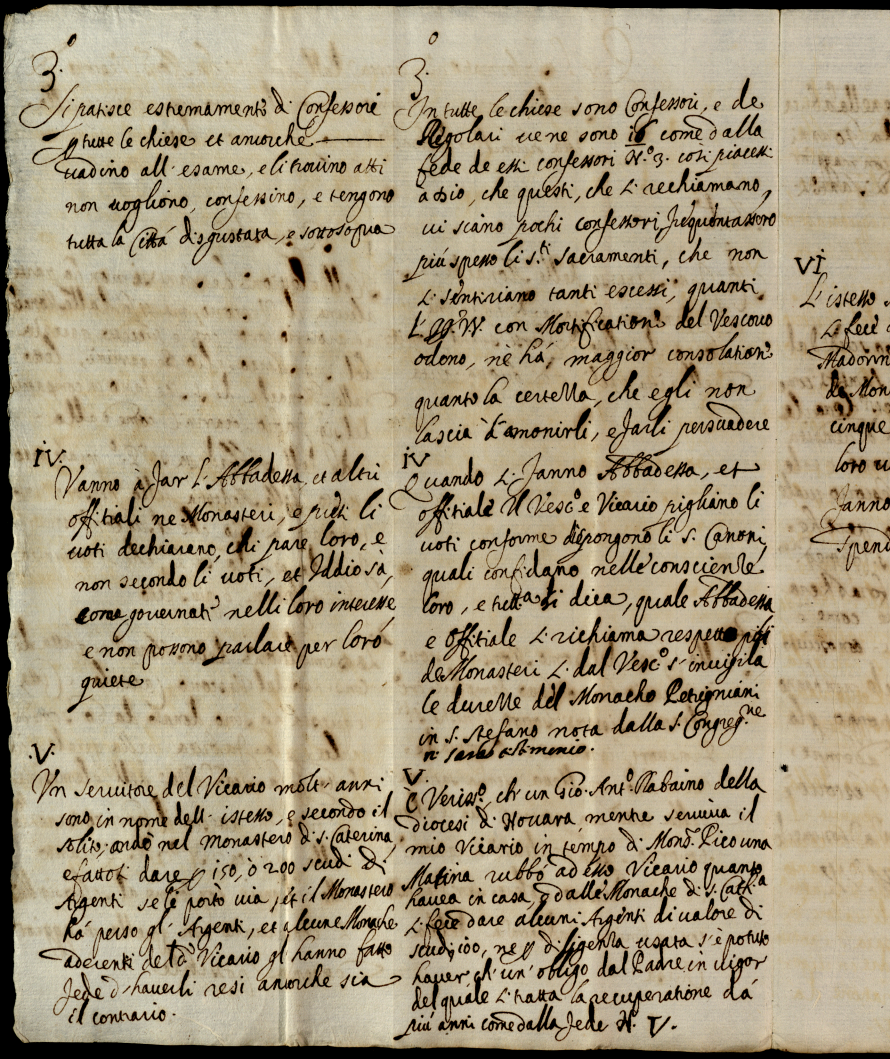 3.º
Si patisce estremamente di Confessori
p tutte le chiese et ancorche
vadino all'esame, e li trovino atti
non vogliono, confessino, e tengono
tutta la Città disgustata, e sottosopra
IV.
Vanno à far l'Abbadessa, et altri
offitiali ne Monasteri, e presi li
voti dechiarano, chi pare loro, e
non secondo li voti, et Iddio sà,
come governati nelli loro interesse,
e non possono parlare per loro
quiete
.V.
Un servitore del Vicario molti anni
sono, in nome dell'istesso, e secondo il
solito, andò nel monastero di s. Caterina,
e fattosi dare p 150, ò 200 scudi di
Argenti se le portò via, et il Monastero
hà perso gl'Argenti, et alcune Monache
aderenti del dº Vicario gl hanno fatto
fede d'haverli resi ancorche sia
il contrario.
3.º
In tutte le chiese sono Confessori, e de
Regolari ve ne sono 16 come dalla
fede de essi confessori N.º 3. così piacesse
a Dio, che questi, che si rechiamano,
vi siano pochi confessori, frequentassero
più spesso li s.ti sacramenti, che non
si sentiriano tanti eccessi, quanti
con Mortificatione del Vescovo
odono, nè hà, maggior consolatione
quanto la certezza, che egli non
lascia d'amonirli, e farli persuadere
IV
Quando si fanno Abbadessa, et
offitiale il Vesc.º e Vicario pigliano li
voti conforme dispongono li s. Canoni,
quali confidano nelle conscienze
loro, e si dica, quale Abbadessa
e offitiale si richiama rispetto più
de Monasteri si dal Vesc.º s'invigila
le durezze del Monacho Petrigniani
in s. Stefano nota dalla s. Congreg.ne
V.
È Veriss.º, ch'un Gio. Ant.º Rabaino della
diocesi di Novara, mentre serviva il
mio Vicario in tempo di Mons.r Pico una
Matina rubbò ad esso Vicario quanto
havea in casa, e dalle Monache di s. Catt.a
si fece dare alcuni Argenti di valore di
scudi 100, ne p diligenza usata s'è potuto
haver, ch'un'obligo dal Padre in vigor
del quale si tratta la recuperatione da
più anni come dalla fede N. V.
VI
L'istesso
si fece
Madonn
de Mon
cinque
loro v
fanno
spend